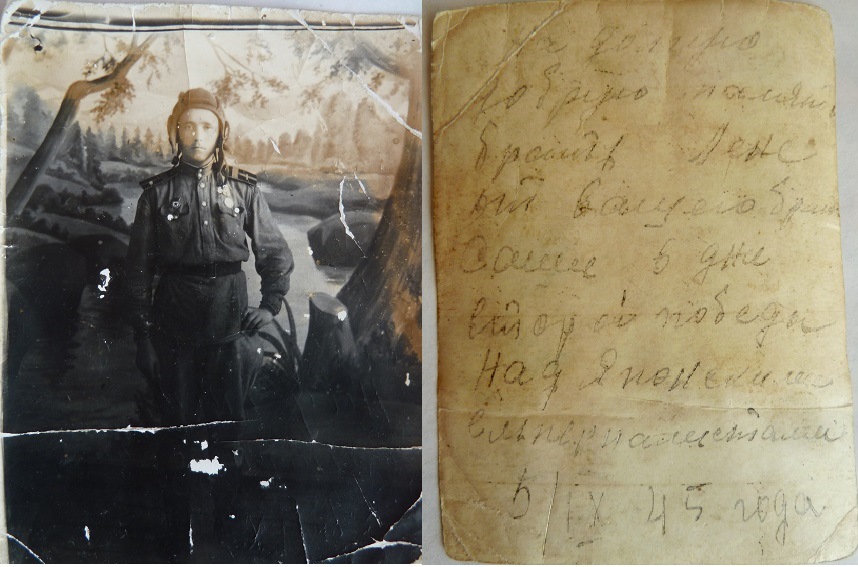 на долгую
добрую память
брату Лене
от вашего брат
Саши в дни
второй победы
над Японскими
империалистами
5/IX 45 года